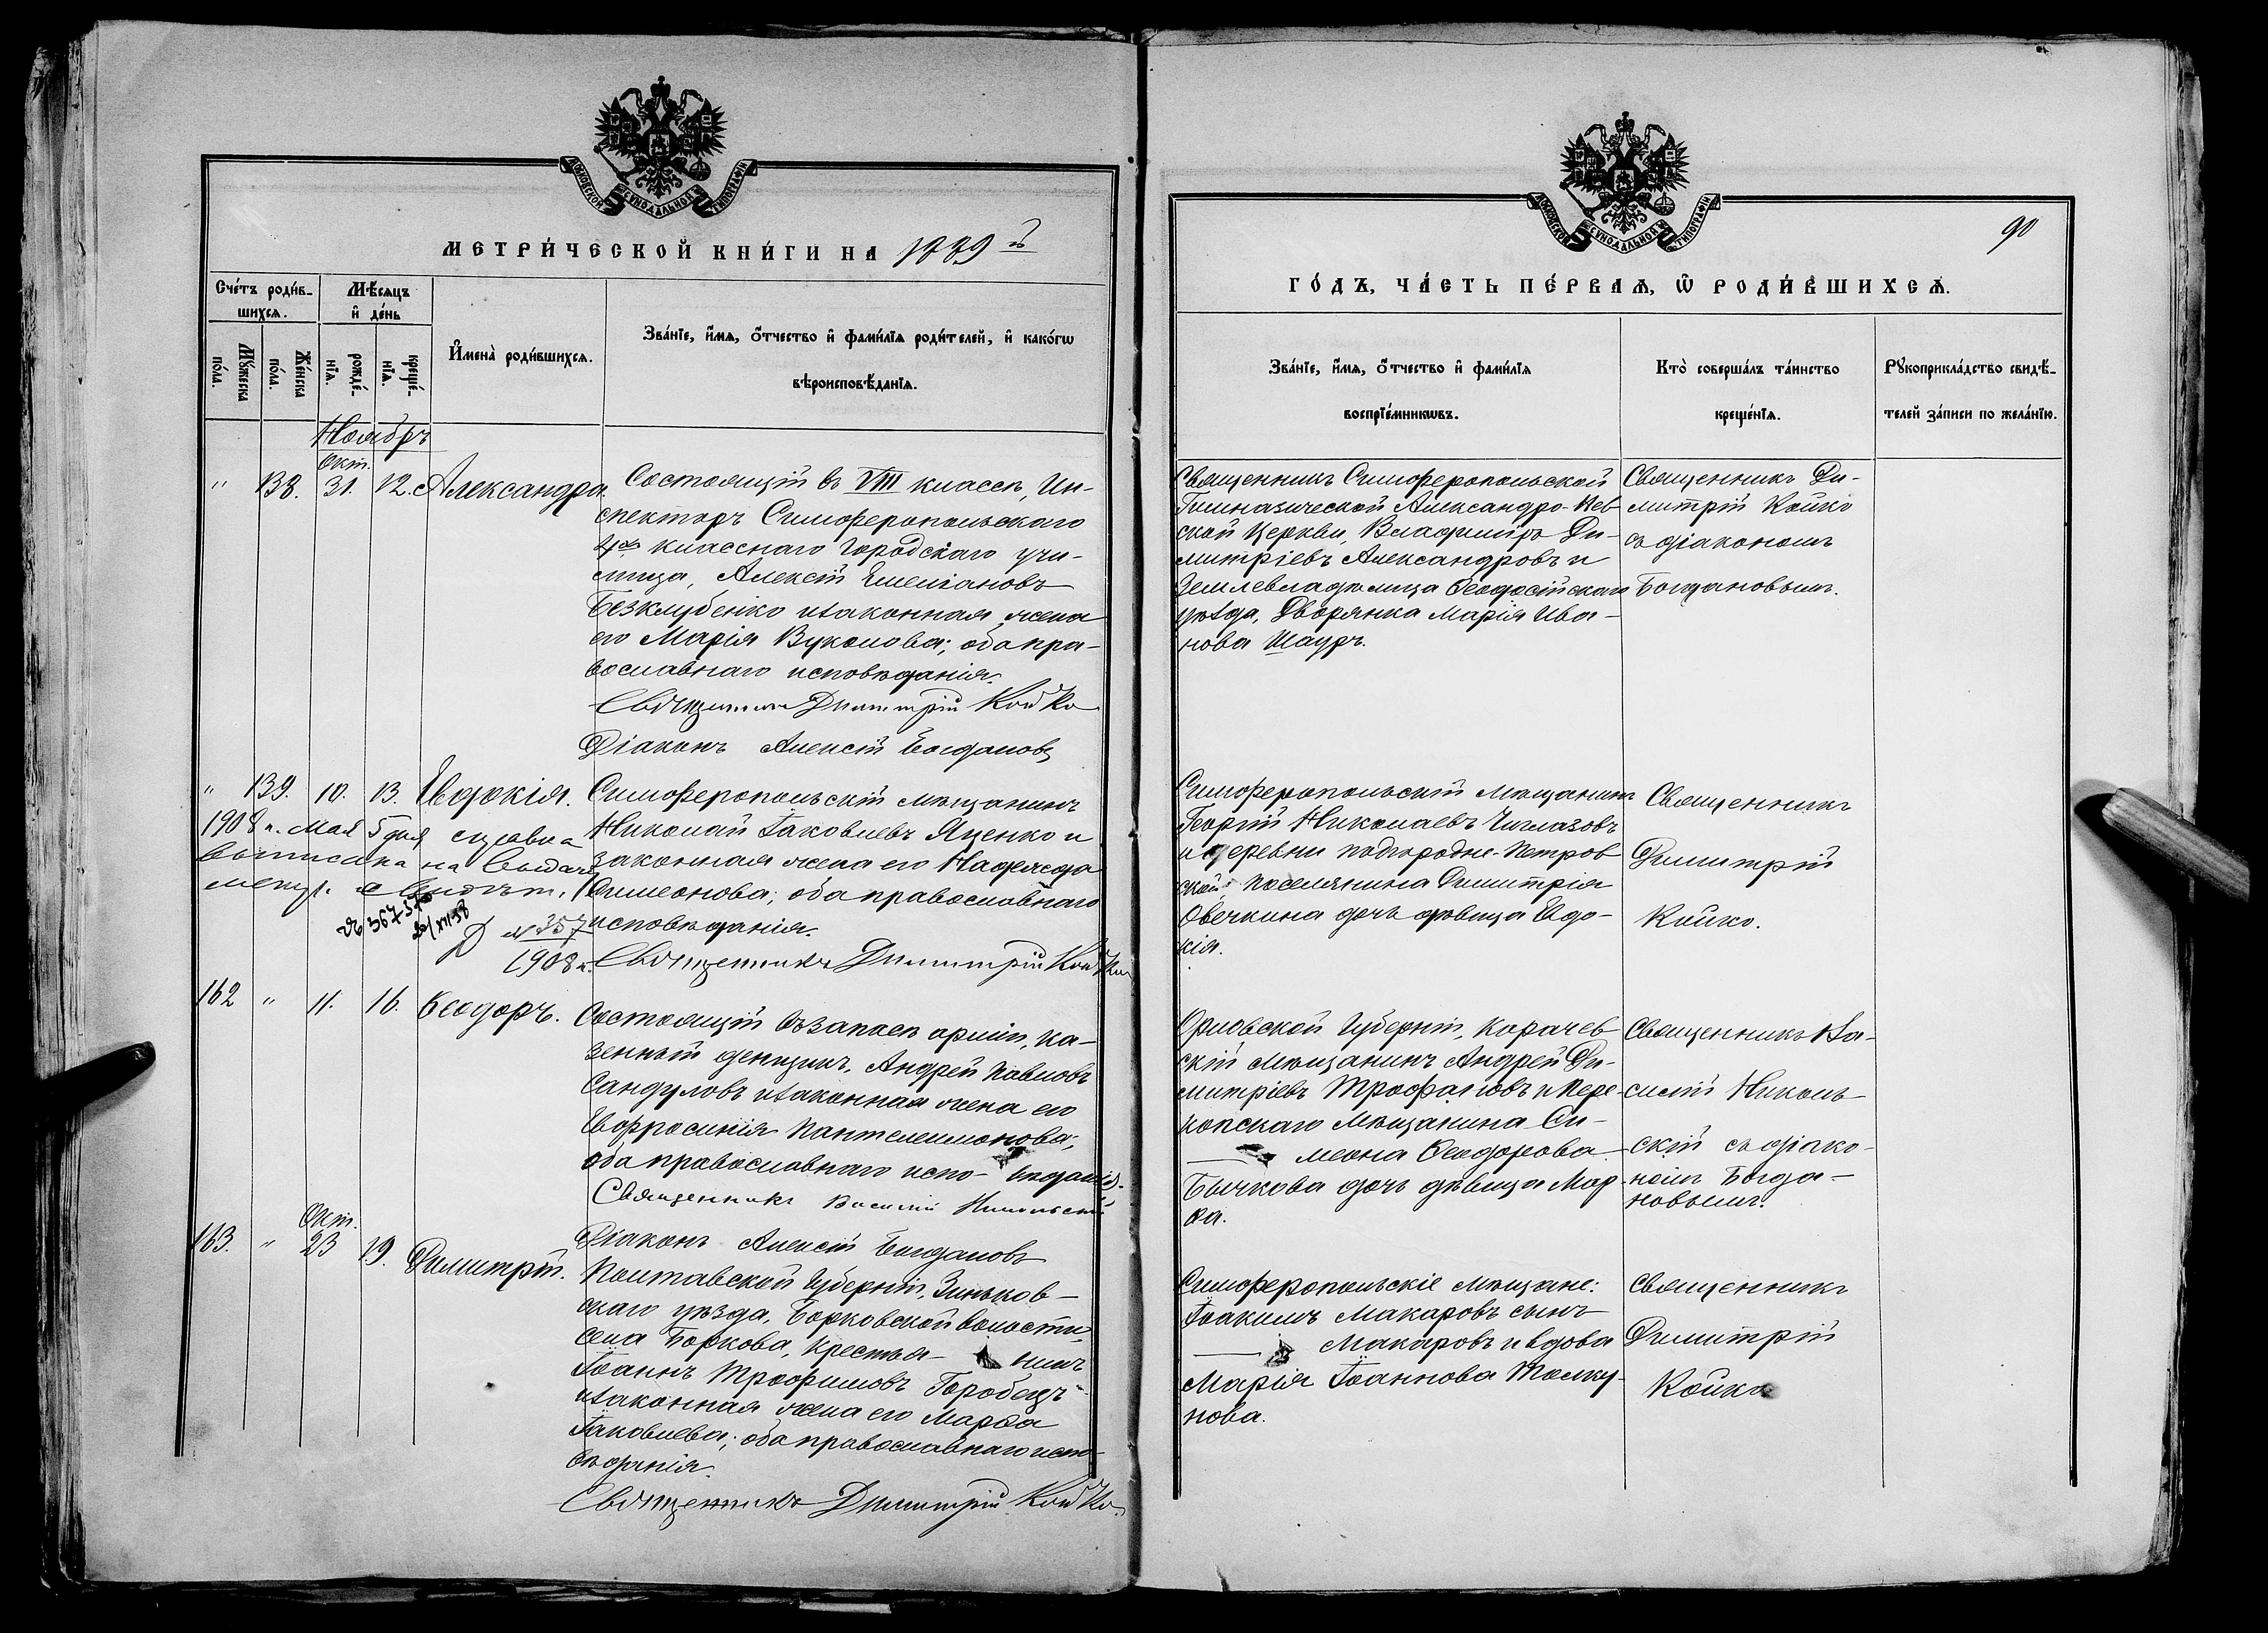 МОСКОВСКОЙ СѴНОДАЛЬНОЙ ТИПОГРАФІИ
МЕТРИ́ЧЕСКОЙ КНИ́ГИ НА 1889 й
Сче́тъ роди́в-
шихся.
Мѣ́сяцъ
и҆ де́нь
Мꙋ́жеска
по́ла.
Же́нска
по́ла.
рожде́-
нїѧ.
креще́-
нїѧ.
И҆мена̀ роди́вшихсѧ.
Зва́нїе, и҆́мѧ, ѻ҆́тчество и҆ фами́лїѧ роди́телей, и҆ како́гѡ
вѣроисповѣ́данїѧ.
Ноябрь
Окт.
" 138. 31. 12. Александра.
Состоящій въ VIII классѣ, Ин-
спекторъ Симферопольскаго
4хъ класснаго Городскаго учи-
лища, Алексѣй Емеліановъ
Безклубенко и законная жена
его Марія Вуколова; оба пра-
вославнаго исповѣданія.
Священникъ Димитрій Койко
Діаконъ Алексій Богдановъ
" 139. 10. 13. Евдокія.
Симферопольскій мѣщанинъ
Николай Іаковлевъ Яценко и
законная жена его Надежда
Симеонова; оба православнаго
исповѣданія.
Священникъ Димитрій Койко
1908 г. Мая 5 дня справка
выписана на выдачу
метр.
№ 357
1908 г.
162 " 11. 16. Ѳеодоръ.
Состоящій въ запасѣ арміи, ка-
зенный денщикъ, Андрей Павловъ
Сандуловъ и законная жена его
Евфросинія Пантелеимонова;
оба православнаго испо- вѣданія.
Священникъ Василій Никольскій
Діаконъ Алексій Богдановъ
Окт.
163. " 23 19. Димитрій.
Полтавской Губерніи, Зиньков-
скаго уѣзда, Борковской волости,
села Боркова, крестья- нинъ
Іоаннъ Трофимовъ Горобецъ
и законная жена его Марѳа
Іаковлева; оба православнаго испо-
вѣданія.
Священникъ Димитрій Койко.
МОСКОВСКОЙ СѴНОДАЛЬНОЙ ТИПОГРАФІИ
90
ГО́ДЪ, ЧА́СТЬ ПЕ́РВАѦ, Ѡ҆ РОДИ́ВШИХСѦ.
Зва́нїе, и҆́мѧ, ѻ҆́тчество и҆ фами́лїѧ
воспрїе́мникѡвъ.
Кто̀ соверша́лъ та́инство
креще́нїѧ.
Рꙋкоприкла́дство свидѣ́-
телей за́писи по жела́нїю.
Священникъ Симферопольской
Гимназической Александро-Нев
ской Церкви, Владиміръ Ди-
митріевъ Александровъ и
Землевладѣлица Ѳеодосійскаго
уѣзда, Дворянка Марія Ива-
нова Шауръ.
Священникъ Ди-
митрій Койко
съ діакономъ
Богдановымъ.
Симферопольскій мѣщанинъ
Георгій Николаевъ Чиглазовъ
и деревни подгородне-Петров
ской поселянина Димитрія
Овечкина дочь дѣвица Евдо-
кія.
Священникъ
Димитрій
Койко.
Орловской Губерніи, Карачев
скій мѣщанинъ Андрей Ди-
митріевъ и Пере-
копскаго мѣщанина Си-
меона Ѳеодорова
Бычкова дочь дѣвица Мар-
ѳа.
Священникъ Ва-
силій Николь-
скій съ діако-
номъ Богда-
новымъ.
Симферопольскіе мѣщане:
Іоакимъ Макаровъ сынъ
Макаровъ и вдова
Марія Іоаннова Толку-
нова.
Священникъ
Димитрій
Койко